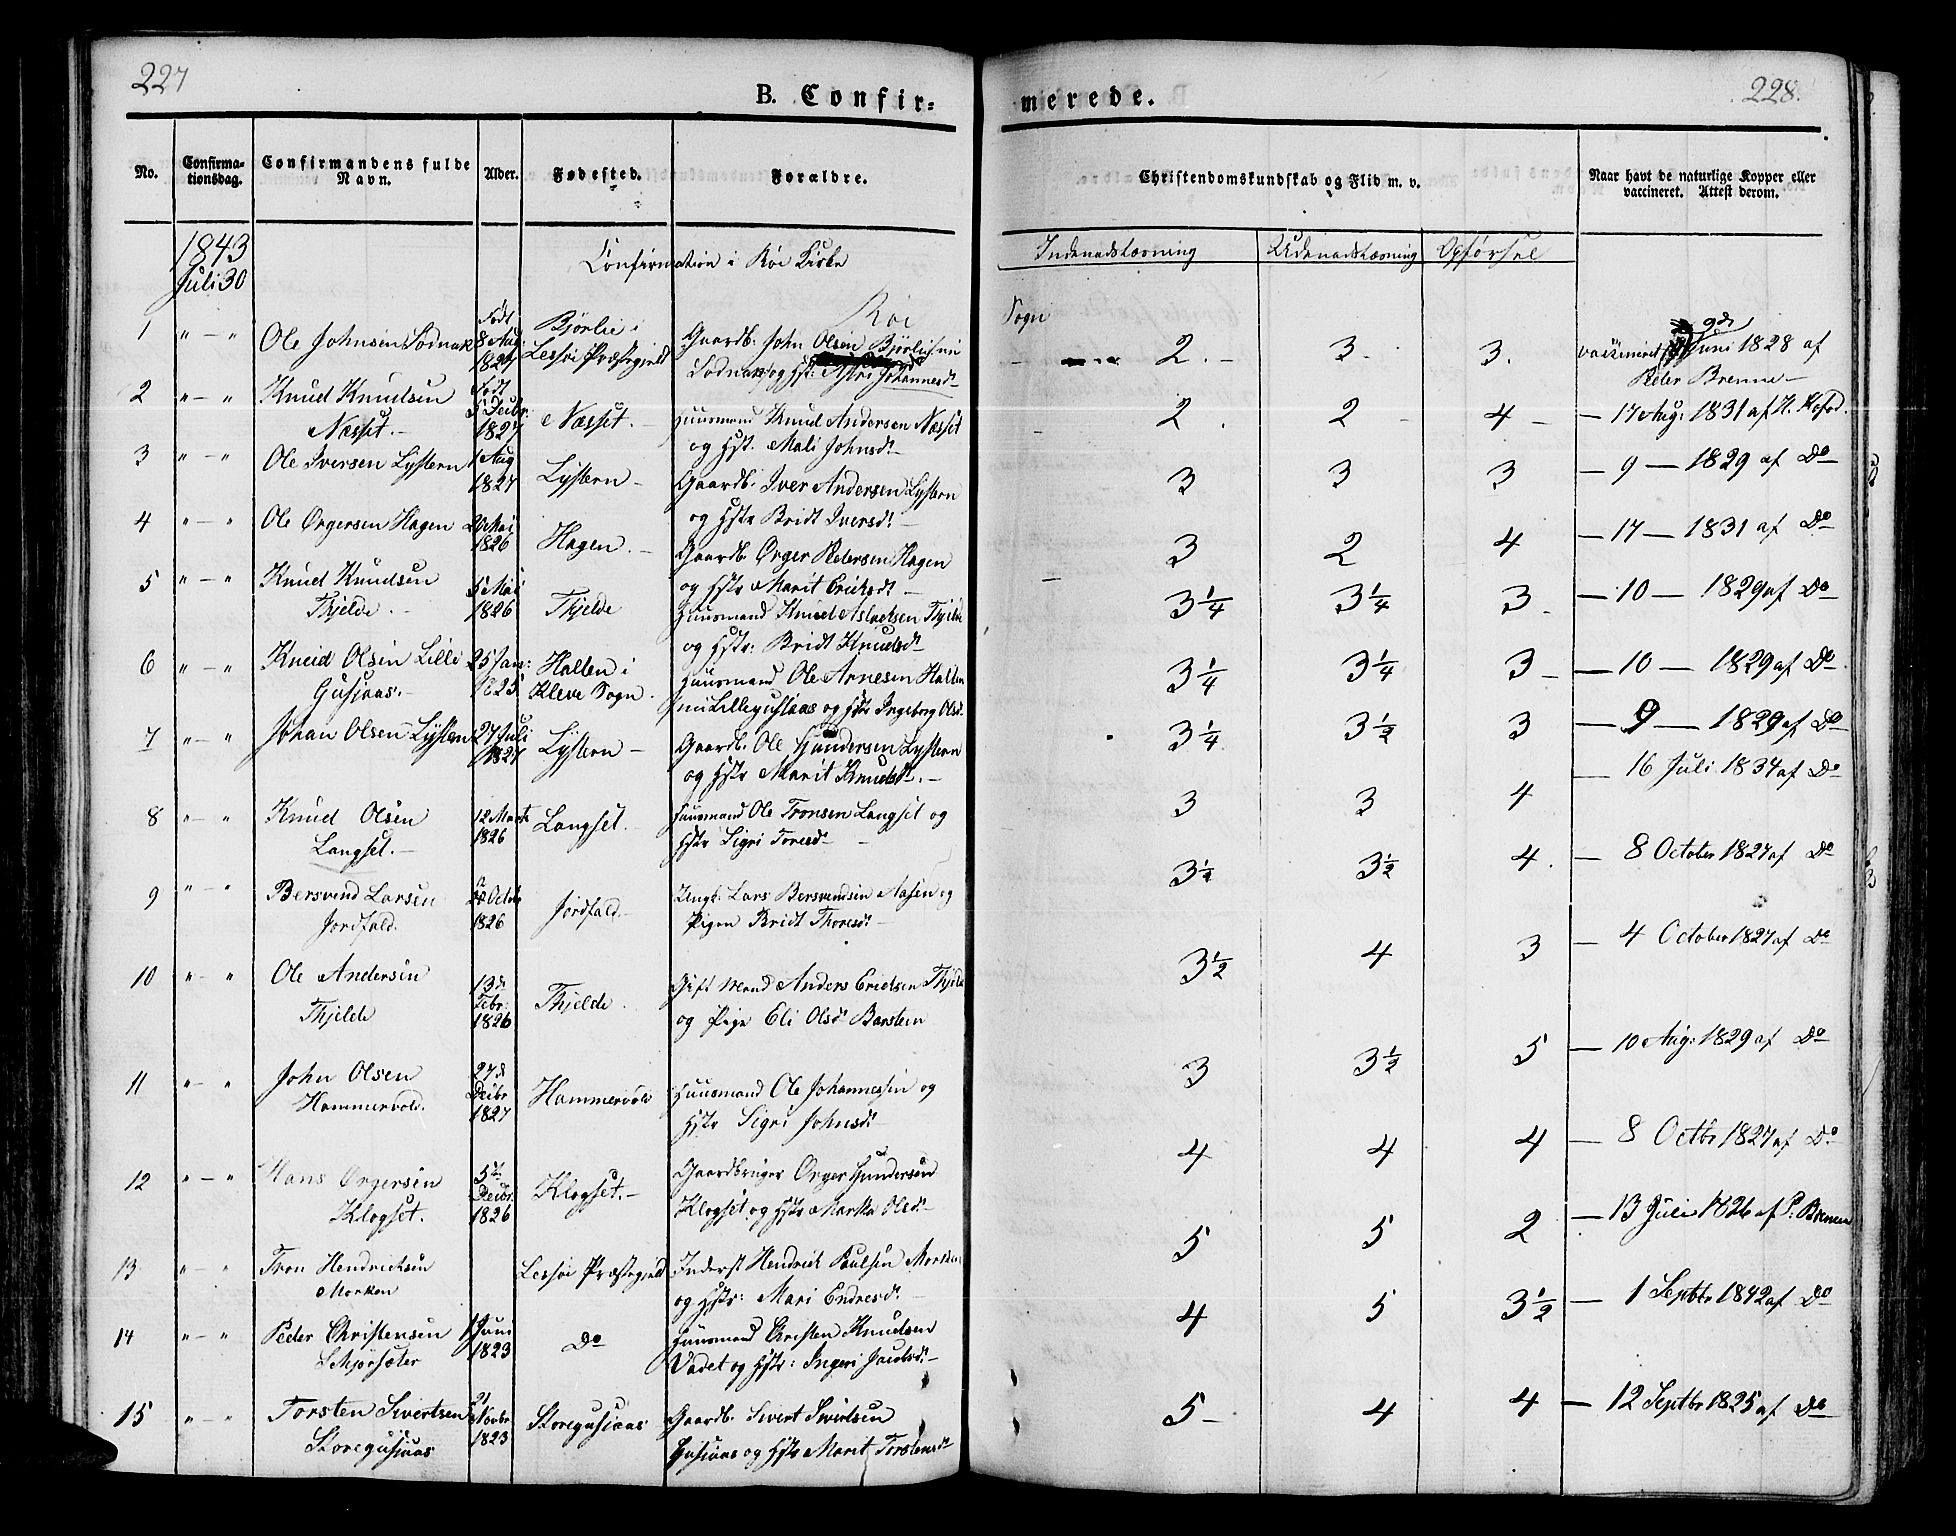 227
B. Confir=
No.
Confirma-
tionsdag.
Confirmandens fulde
Navn.
Alder.
Fødested.
Forældre.
1843
Juli 30
Confirmation i Røe Kirke
Røe
1 " — " Ole Johnsen Sødnak
Født
8 Aug:
1827
Bjørlie i
Lessøe Præstegjeld
Gaardb: John Olsen Bjørlie
Sødnak og Hst: Astri Johannesdt
2 " — " Knud Knudsen
Næsset. —
Født
5 Decbr:
1827
Næsset. —
Huusmand Knud Andersen Næsset
og Hst. Mali Johnsdt —
3 " — " Ole Iversen Lystern
1 Aug
1827
Lystern —
Gaardb: Iver Andersen Lystern
og Hstr Bridt Iversdt —
4 " — " Ole Ørgersen Hagen
Mai
1826
Hagen. —
Gaardb. Ørger Pedersen Hagen
og Hstr Marit Ericksdt —
5 " — " Knud Knudsen
Thjelde. —
5 Mai
1826
Thjelde
Huusmand Knud Aslacksen Thjelde
og Hstr: Bridt Knudsdt
6 " — " Knud Olsen Lille
Gusiaas. —
25 Jan:
1825
Hallen i
Kleve Sogn.
Huusmand Ole Arnesen Hallen
Lillegusiaas og Hstr Ingeborg Olsd.
7 " — " Johan Olsen Lystern
27 Juli
1827
Lystern —
Gaardb. Ole Gundersen Lystern
og Hstr Marit Knudsdt. —
8 " — " Knud Olsen
Langset. —
12 Marts
1826
Langset.
Huusmand Ole Tronsen Langset og
Hstr Sigri Toresdt —
9 " — " Bersvend Larsen
Jordfald.
Octbr
1826
Jordfald. —
Ungk: Lars Bersvendsen Aasen og
Pigen Bridt Thoresdt —
10 " — " Ole Andersen
Thjelde
13de
Febr:
1826
Thjelde.
Gift Mand Anders Ericksen Thjelde
og Pige Eli Olsdt Barsten
11 " — " John Olsen
Hammervold.
27de
Decbr
1827
Hammervold
Huusmand Ole Johannessen og
Hstr Sigri Johnsdt —
12 " — " Hans Ørgersen
Klogset.
5te
Decbr.
1826
Klogset. —
Gaardbruger Ørger Gundersen
Klogset og Hstr Marta Olsdt. —
13 " — " Tron Hendrichsen
Morken
Lessøe Præstegjeld
Inderst Hendrick Paulsen Morken
og Hstr: Mari Endresdt. —
14 " — " Peder Christensen
Schjørsæter
1 Juni
1823
Do
Huusmand Christen Knudsen
Vadet og Hstr: Ingeri Jacobsdt. —
15 " — " Torsten Sivertsen
Storegusiaas
21
Novbr
1823
Storegusiaas
Gaardb. Sivert Sivertsen
Gusiaas og Hstr Marit Torstensdt
228.
merede.
Christendomskundskab og Flid m. v.
Naar havt de naturlige Kopper eller
vaccineret. Attest derom.
Indenadslæsning Udenadslæsning Opførsel
Sogn
2. — 3. 3. vaccineret Juni 1828 af
Peder Brenne —
2 . 2 — 4 — — 17 Aug: 1831 af H. Kofod.
3 3 3 — 9 — 1829 af Do
3 2 4 — 17 — 1831 af Do
3 1/4 3 1/4 3 — — 10 — 1829 af Do
3 1/4 3 1/4 3 — — 10 — 1829 af Do
3 1/4 3 1/2 3 — 9 — 1829 af Do
3 3 4 — 16 Juli 1834 af Do
3 1/2 3 1/2 4 . — 8 October 1827 af Do
3 1/2 4 3 — 4 October 1827 af Do
3 3 1/2 5 — 10 Aug: 1829 af Do
4 4 4 — 8 Octbr 1827 af Do
5 5 2 — 13 Juli 1826 af P: Brenne
4 5 3 1/2 — 1 Septbr 1842 af Do
5 — 4 4 — 12 Septbr 1825 af Do